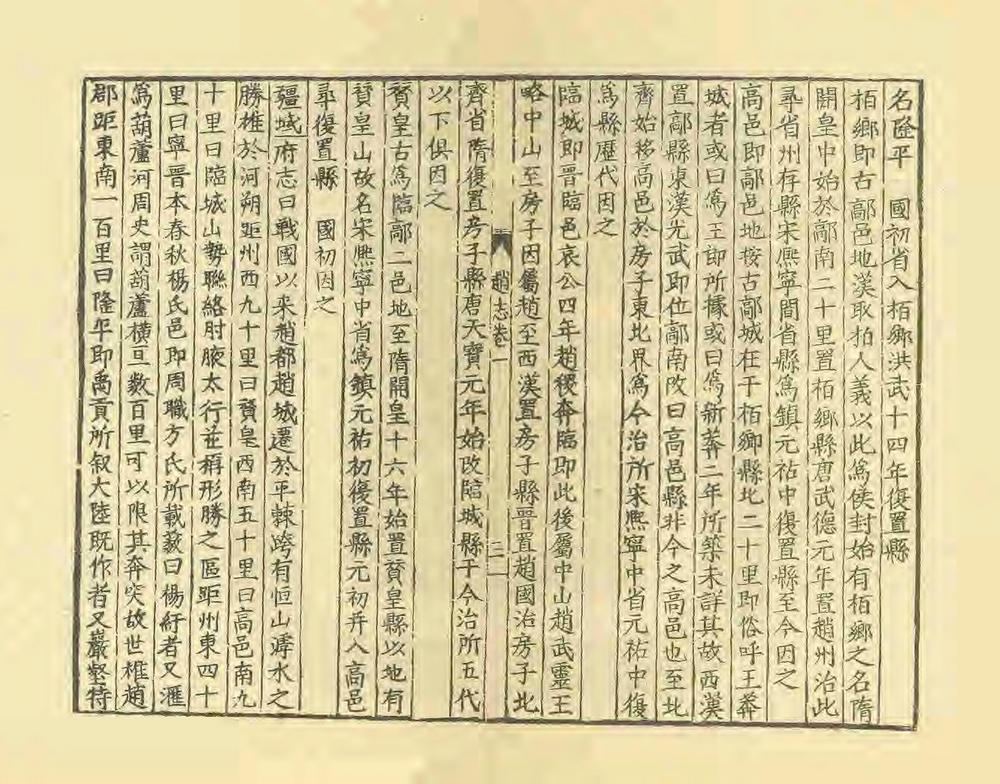 名隆平　國初省入栢鄉洪武十四年復置縣
栢鄉即古鄗邑地漢取拍人義以此爲侯封始有栢鄉之名隋
開皇中始於鄗南二十里置栢鄉縣唐武德元年置趙州治此
尋省州存縣宋熈寧間省縣爲鎮元祐中復置縣至今因之
高邑即鄗邑地按古鄗城在于栢鄉縣北二十里即俗呼王莽
城者或曰爲王郎所據或曰爲新莽二年所築未詳其故西漢
置鄗縣東漢光武即位鄗南改曰高邑縣非今之高邑也至北
齊始移高邑於房子東北界爲今治所宋熈寧中省元祐中復
爲縣歷代因之
臨城即晉臨邑哀公四年趙稷奔臨即此後屬中山趙武靈王
略中山至房子因屬趙至西漢置房子縣晉置趙國治房子北
趙志卷一
三
齊省隋復置房子縣唐天寶元年始改臨城縣于今治所五代
以下俱因之
賛皇古爲臨鄗二邑地至隋開皇十六年始置賛皇縣以地有
賛皇山故名宋熈寧中省爲鎮元祐初復置縣元初幷入高邑
尋復置縣　國初因之
疆域府志曰戰國以来趙都趙城遷於平棘跨有恒山滹水之
勝榷於河朔距州西九十里曰賛皇西南五十里曰高邑南九
十里曰臨城山勢聯絡肘腋太行並稱形勝之區距州東四十
里曰寧晉本春秋楊氏邑即周職方氏所載藪曰楊紆者又滙
爲葫蘆河周史謂葫蘆橫亘数百里可以限其奔突故世榷趙
郡距東南一百里曰隆平即禹貢所叙大陸既作者又巖壑特